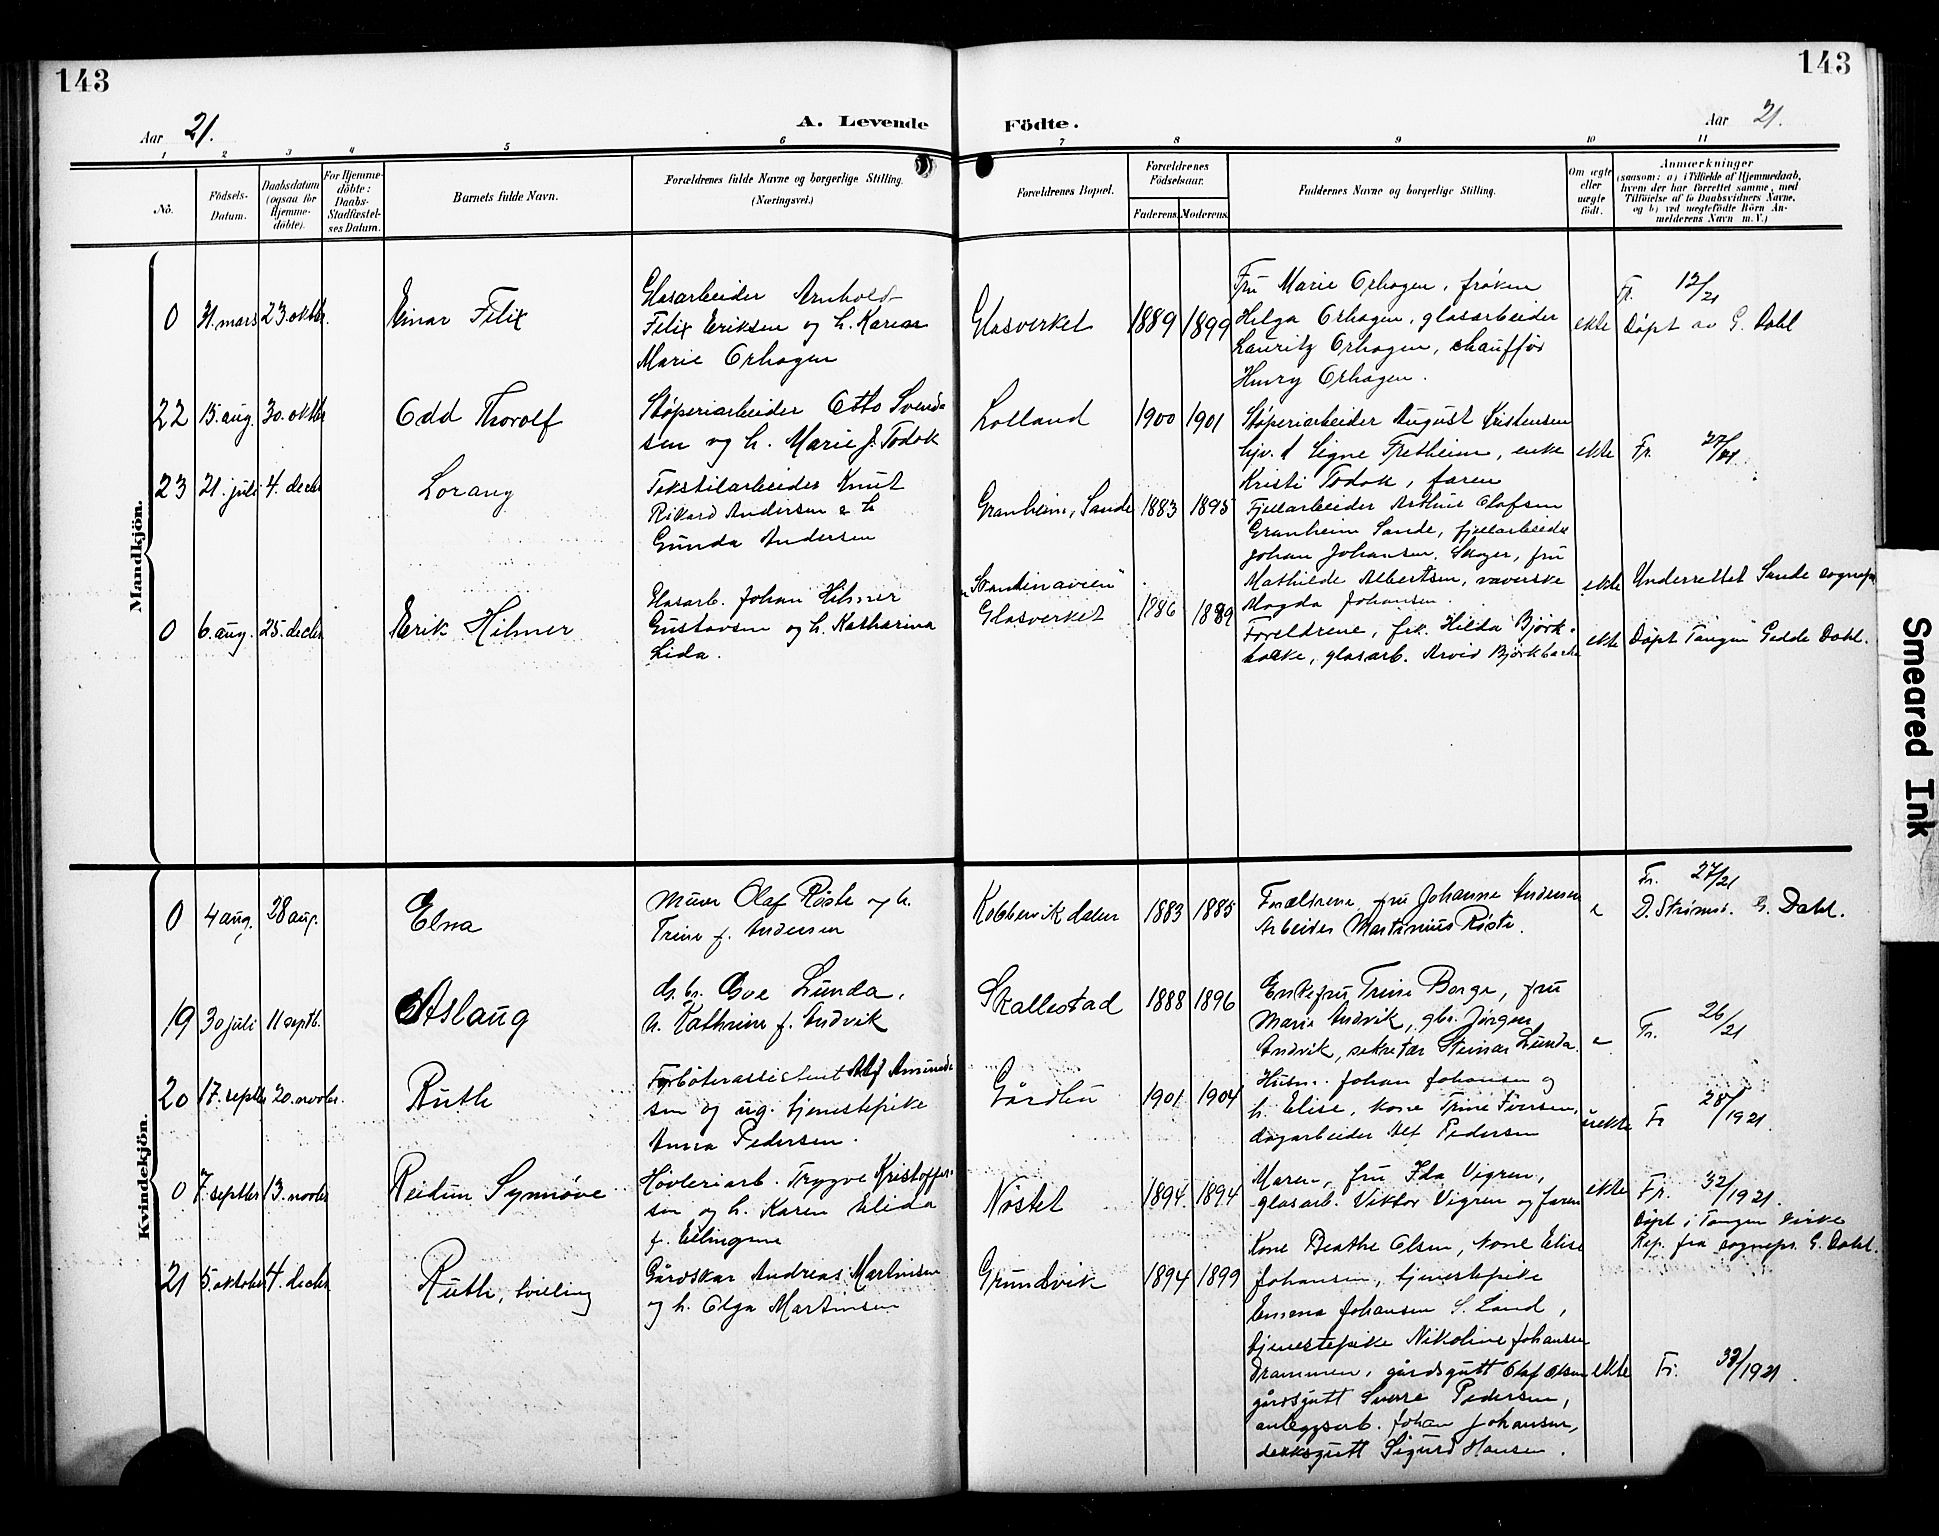 143
143
Aar 21.
A. Levende Födte.
Aar 21.
1 2 3 4 5 6 7 8 9 10 11
No.
Födsels-Datum.
Daabsdatum (ogsaa for Hjemme-döbte).
For Hjemme-döbte: Daabs-Stadfæstel-ses Datum.
Barnets fulde Navn.
Forældrenes fulde Navne og borgerlige Stilling. (Næringsvei.)
Forældrenes Bopæl.
Forældrenes Födselsaar.
Faderens. Moderens.
Faddernes Navne og borgerlige Stilling.
Om ægte eller uægte födt.
Anmærkninger
(saasom: a) i Tilfælde af Hjemmedaab, hvem der har forrettet samme, med Tilföielse af to Daabsvidners Navne, og b) ved uægtefödte Börn An-melderens Navn m. V.)
Mandkjön.
0 31. mars 23. oktbr. Einar Felix
Glasarbeider Arnhold
Felix Eriksen og h. Karen
Marie Orhagen
Glasverket 1889 1899
Fru Marie Orhagen, frøken
Helga Orhagen, glasarbeider
Lauritz Orhagen, chauffør
Henry Orhagen.
ekte
Fr. 12/21
Døpt av G. Dahl
22 15. aug. 30. oktbr Odd Thorolf
Støperiarbeider Otto Svend-
sen og h. Marie J. Todok
Lolland 1900 1901
Støperiarbeider August Kristensen
Signe Fretheim, enke
Kristi Todok, faren
ekte Fr. 27/21
23 21. juli 4. decbr Lorang
Tekstilarbeider Knut
Rikard Andersen & h
Gunda Andersen
Granheim, Sande 1883 1895
Fjellarbeider Arthur Olafsen
Granheim Sande, fjellarbeider
Johan Johansen, Skoger, fru
Mathilde Albertsen, væverske
Magda Johansen
ekte Underrettet Sande sognepr
0 6. aug. 25. decbr Erik Hilmer
Glasarb. Johan Hilmer
Gustavsen og h. Katharina
Lida.
"Skandinavien"
Glasverket 1886 1889
Foreldrene, frk. Hilda Bjørk-
backe, glasarb. Arvid Bjørkbacke
ekte Døpt Tangen Gedde Dahl.
Kvindekjön.
0 4 aug. 28 aug. Elna
Murer Olaf Røste og h.
Trine f. Andersen
Kobbervikdalen 1883 1885
Forældrene, fru Johanne Andersen
Arbeider Martinius Røste.
e
Fr. 27/21
D. Strømsø. G. Dahl.
19 30 juli 11 septb. Aslaug
G. br. Ove Lunda,
h. Kathrine f. Andvik
Skallestad 1888 1896
Enkefru Trine Borge, fru
Marie Andvik, gbr. Jørgen
Andvik, sekretær Steinar Lunda.
e Fr. 26/21
20 17. septbr 20. novbr. Ruth
Fyrbøterassistent Alf Amund-
sen og ug. tjenestepike
Anna Pedersen.
Gårdhu 1901 1904
Husm. Johan Johansen og
h. Elise, kone Trine Iversen,
dagarbeider Alf Pedersen
uekte Fr 28/1921.
0 7. septbr 13. novbr Reidun Synnøve
Høvleriarb. Trygve Kristoffer-
sen og h. Karen Elida
f. Ellingsen
Nøstet 1894. 1894
Moren, fru Ida Vigren,
glasarb. Viktor Vigren og faren
ekte
Fr. 32/1921.
Døpt i Tangen kirke
Rep. fra sognepr. G. Dahl.
21 5. oktober 4. decbr Ruth, tvilling
Gårdskar Andreas Martinsen
og h. Olga Martinsen
Grundvik 1894 1899
Kone Beathe Olsen, kone Elise
Johansen, tjenestepike
Emma Johansen S. Land,
tjenestepike Nikoline Johansen
Drammen, gårdsgutt Olaf Olsen
gårdsgutt Sverre Pedersen,
anleggsarb. Johan Johansen,
dekksgutt Sigurd Hansen.
ekte Fr. 33/1921.
Smeared Ink